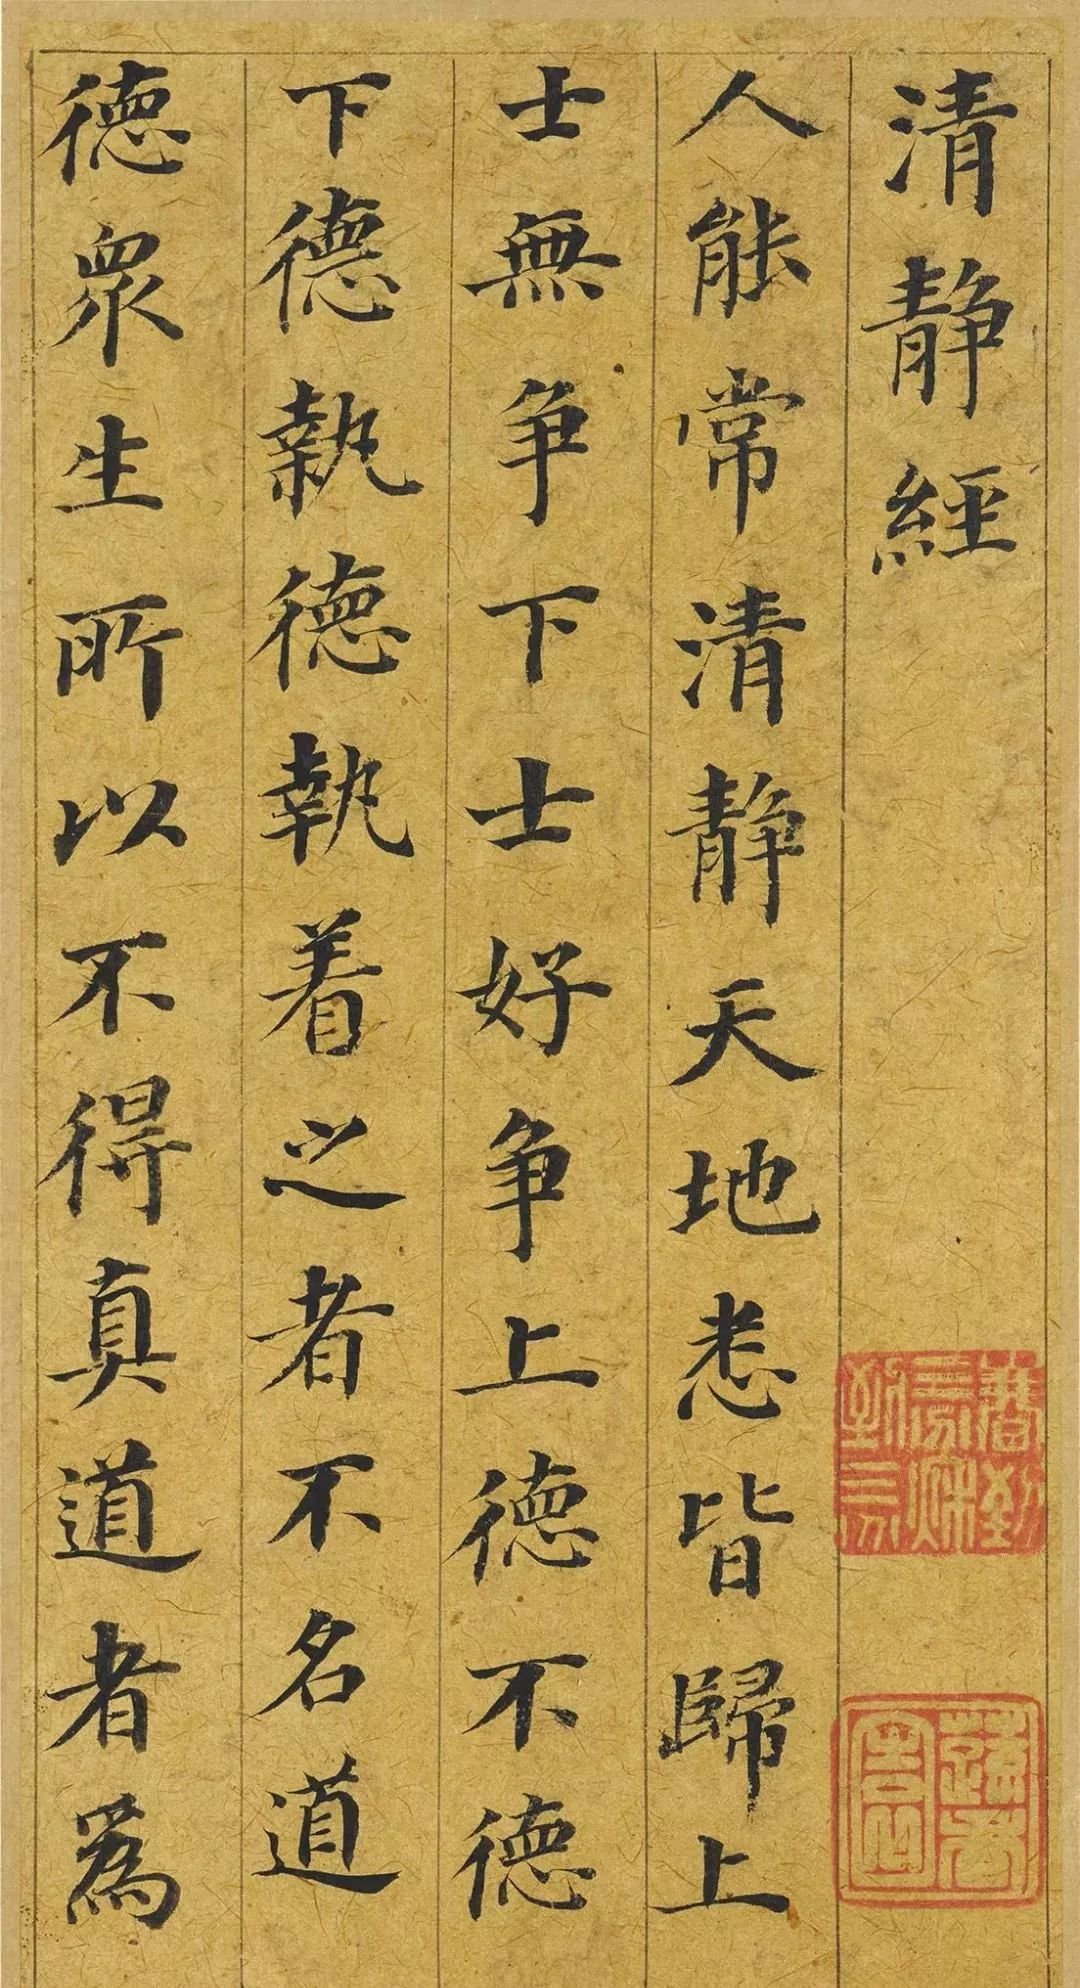 清靜經
人能常清靜天地悉皆歸上
士無爭下士好爭上德不德
下德執德執着之者不名道
德眾生所以不得真道者爲